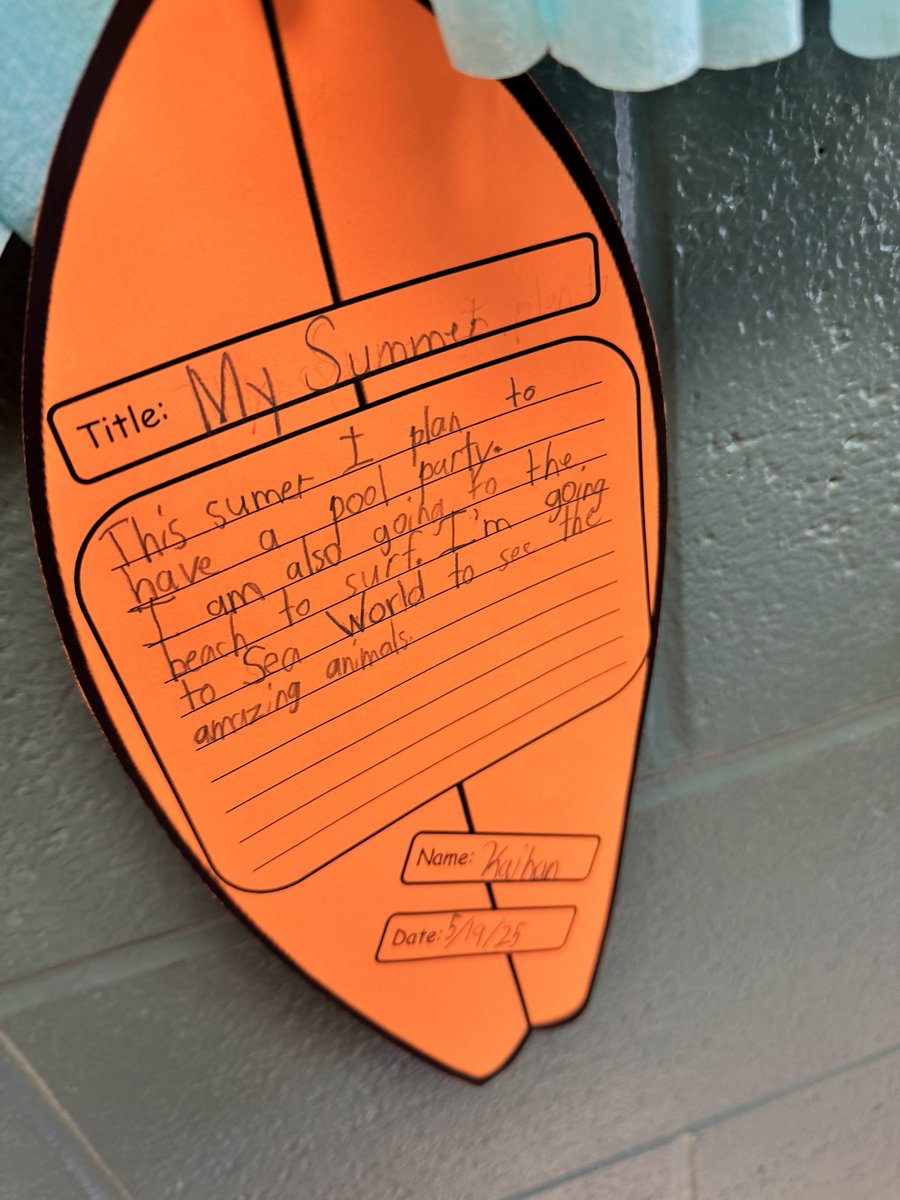 Title: My Summer
This sumer I plan to
have a pool party.
I am also going to the
beach to surf. I'm going
to Sea World to see the
amazing animals.
Name: Kaihan
Date: 5/19/25